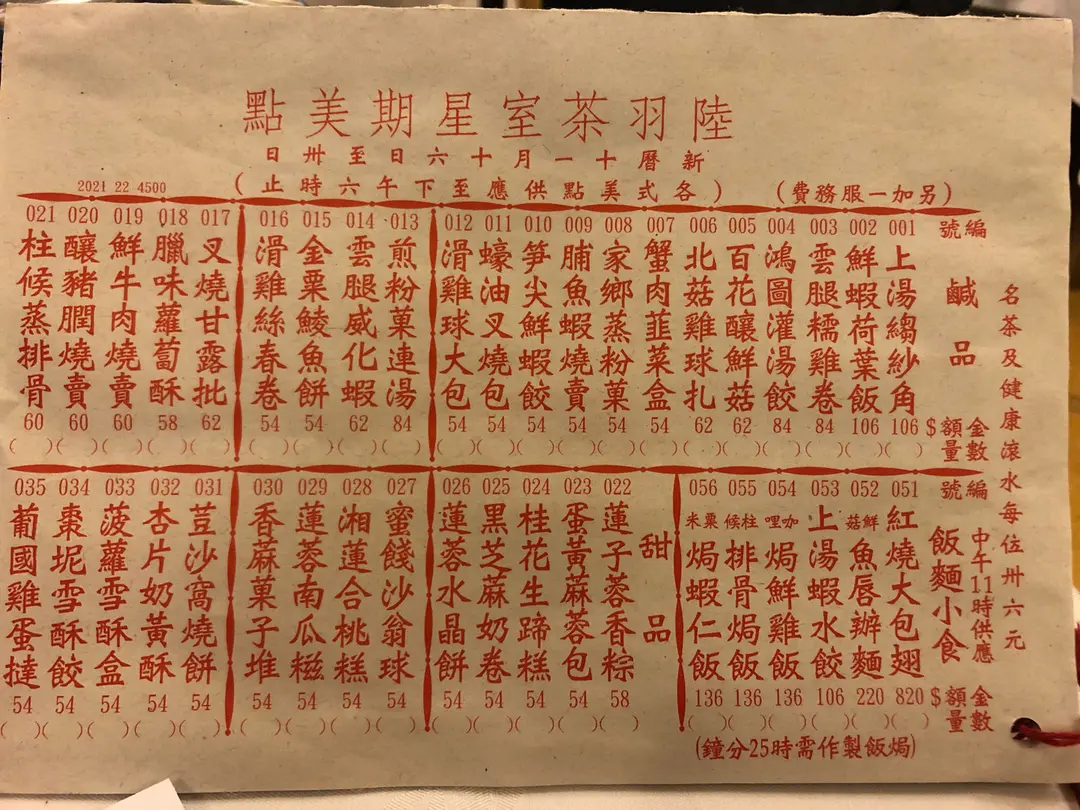 陸羽茶室星期美點
新曆十一月十六日至卅日
(各式美點供應至下午六時止)
(另加一服務費)
2021 22 4500
名茶及健康滾水每位卅六元
編號
鹹品
金額 $
數量
001 上湯縐紗角 106 ( )
002 鮮蝦荷葉飯 106 ( )
003 雲腿糯雞卷 84 ( )
004 鴻圖灌湯餃 84 ( )
005 百花釀鮮菇 62 ( )
006 北菇雞球扎 62 ( )
007 蟹肉韮菜盒 54 ( )
008 家鄉蒸粉菓 54 ( )
009 脯魚蝦燒賣 54 ( )
010 笋尖鮮蝦餃 54 ( )
011 蠔油叉燒包 54 ( )
012 滑雞球大包 54 ( )
013 煎粉菓連湯 84 ( )
014 雲腿威化蝦 62 ( )
015 金栗鯪魚餅 54 ( )
016 滑雞絲春卷 54 ( )
017 叉燒甘露批 62 ( )
018 臘味蘿蔔酥 58 ( )
019 鮮牛肉燒賣 60 ( )
020 釀豬膶燒賣 60 ( )
021 柱候蒸排骨 60 ( )
編號
飯麵小食
中午11時供應
金額 $
數量
051 紅燒大包翅 820 ( )
052 鮮菇魚唇辦麵 220 ( )
053 上湯蝦水餃 106 ( )
054 咖哩焗鮮雞飯 136 ( )
055 柱候排骨焗飯 136 ( )
056 粟米焗蝦仁飯 136 ( )
(焗飯製作需時25分鐘)
甜品
022 蓮子蓉香粽 58 ( )
023 蛋黃蔴蓉包 54 ( )
024 桂花生蹄糕 54 ( )
025 黑芝蔴奶卷 54 ( )
026 蓮蓉水晶餅 54 ( )
027 蜜餞沙翁球 54 ( )
028 湘蓮合桃糕 54 ( )
029 蓮蓉南瓜糍 54 ( )
030 香蔴菓子堆 54 ( )
031 荳沙窩燒餅 54 ( )
032 杏片奶黃酥 54 ( )
033 菠蘿雪酥盒 54 ( )
034 棗坭雪酥餃 54 ( )
035 葡國雞蛋撻 54 ( )